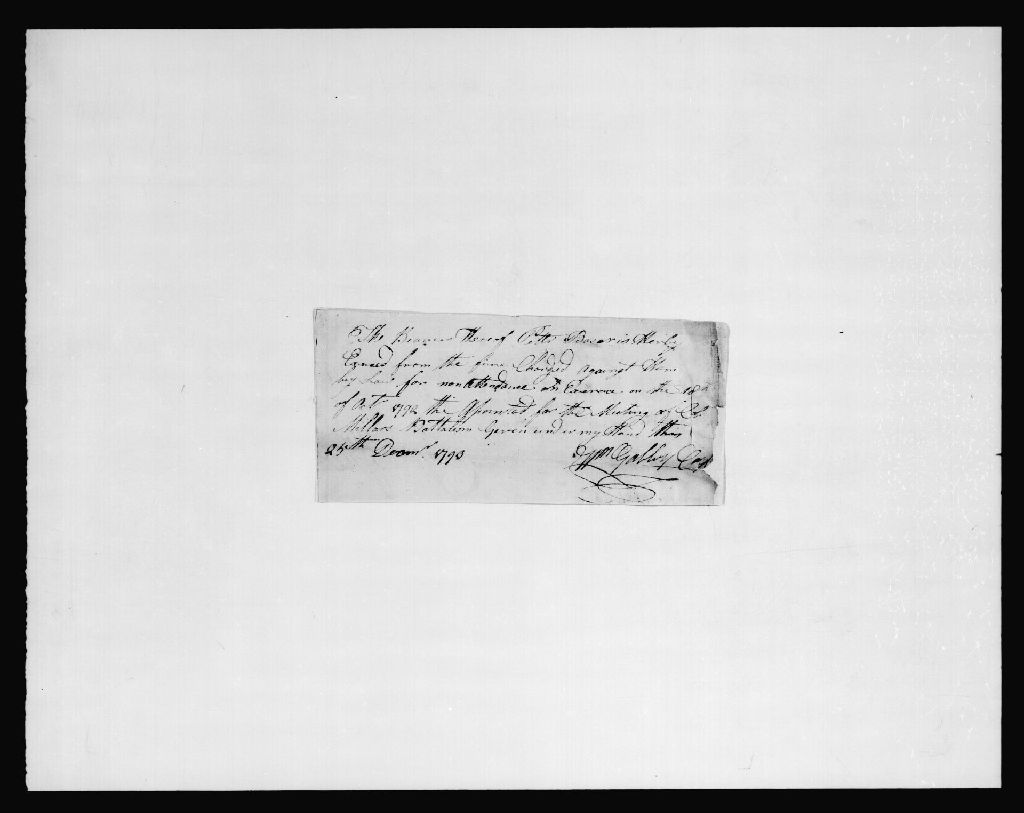 The Bearer thereof Peter is Hereby
Excused from the fine Charged against Them
by Law for nonattendance on Exercise on the 18th
of Octr 1792 the for the Meeting of Col
Millars Battalion Given under my Hand this
25th Decemr. 1793 Wm Galbry Capt